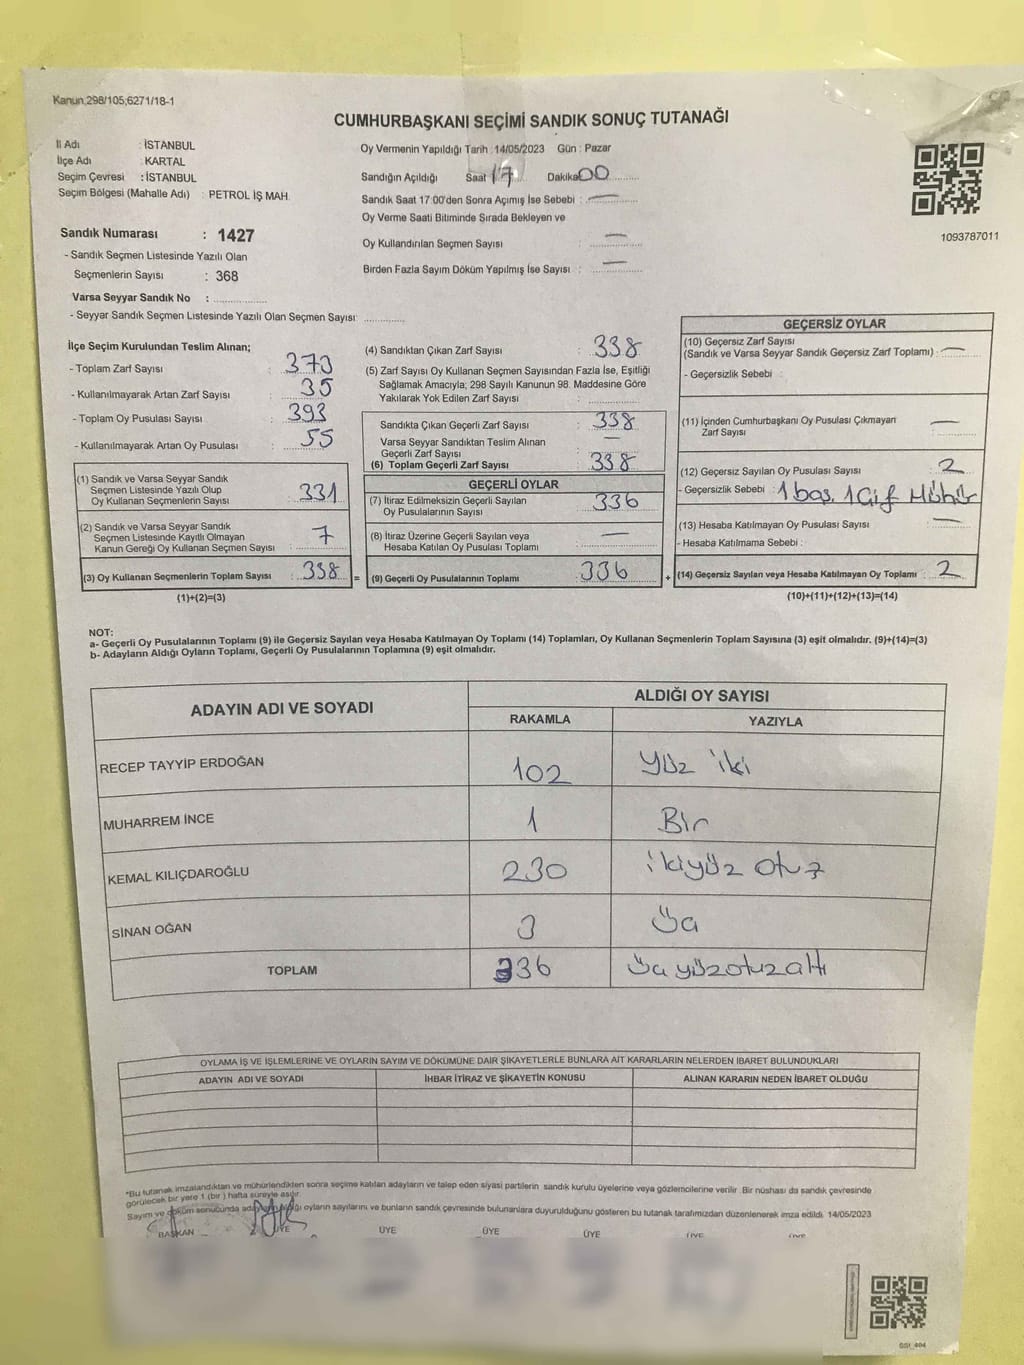 Kanun;298/105;6271/18-1
CUMHURBAŞKANI SEÇİMİ SANDIK SONUÇ TUTANAĞI
İl Adı : İSTANBUL
İlçe Adı : KARTAL
Seçim Çevresi : İSTANBUL
Seçim Bölgesi (Mahalle Adı) : PETROL İŞ MAH.
Sandık Numarası : 1427
- Sandık Seçmen Listesinde Yazılı Olan
Seçmenlerin Sayısı : 368
Varsa Seyyar Sandık No :
- Seyyar Sandık Seçmen Listesinde Yazılı Olan Seçmen Sayısı:
Oy Vermenin Yapıldığı Tarih :14/05/2023 Gün : Pazar
Sandığın Açıldığı Saat 17 Dakika 00
Sandık Saat 17:00'den Sonra Açımış İse Sebebi : —
Oy Verme Saati Bitiminde Sırada Bekleyen ve
Oy Kullandırılan Seçmen Sayısı : —
Birden Fazla Sayım Döküm Yapılmış İse Sayısı : —
1093787011
İlçe Seçim Kurulundan Teslim Alınan;
- Toplam Zarf Sayısı : 373
- Kullanılmayarak Artan Zarf Sayısı : 35
- Toplam Oy Pusulası Sayısı : 393
- Kullanılmayarak Artan Oy Pusulası : 55
(1) Sandık ve Varsa Seyyar Sandık
Seçmen Listesinde Yazılı Olup
Oy Kullanan Seçmenlerin Sayısı : 331
(2) Sandık ve Varsa Seyyar Sandık
Seçmen Listesinde Kayıtlı Olmayan
Kanun Gereği Oy Kullanan Seçmen Sayısı : 7
(3) Oy Kullanan Seçmenlerin Toplam Sayısı : 338 =
(1)+(2)=(3)
(4) Sandıktan Çıkan Zarf Sayısı : 338
(5) Zarf Sayısı Oy Kullanan Seçmen Sayısından Fazla İse, Eşitliği
Sağlamak Amacıyla; 298 Sayılı Kanunun 98. Maddesine Göre
Yakılarak Yok Edilen Zarf Sayısı :
Sandıkta Çıkan Geçerli Zarf Sayısı : 338
Varsa Seyyar Sandıktan Teslim Alınan
Geçerli Zarf Sayısı : —
(6) Toplam Geçerli Zarf Sayısı : 338
GEÇERLİ OYLAR
(7) İtiraz Edilmeksizin Geçerli Sayılan
Oy Pusulalarının Sayısı : 336
(8) İtiraz Üzerine Geçerli Sayılan veya
Hesaba Katılan Oy Pusulası Toplamı : —
(9) Geçerli Oy Pusulalarının Toplamı : 336 +
GEÇERSİZ OYLAR
(10) Geçersiz Zarf Sayısı
(Sandık ve Varsa Seyyar Sandık Geçersiz Zarf Toplamı) : —
- Geçersizlik Sebebi :
(11) İçinden Cumhurbaşkanı Oy Pusulası Çıkmayan
Zarf Sayısı : —
(12) Geçersiz Sayılan Oy Pusulası Sayısı : 2
- Geçersizlik Sebebi : 1 boş. 1 Çif Mühür
(13) Hesaba Katılmayan Oy Pusulası Sayısı : —
- Hesaba Katılmama Sebebi :
(14) Geçersiz Sayılan veya Hesaba Katılmayan Oy Toplamı : 2
(10)+(11)+(12)+(13)=(14)
NOT:
a- Geçerli Oy Pusulalarının Toplamı (9) ile Geçersiz Sayılan veya Hesaba Katılmayan Oy Toplamı (14) Toplamları, Oy Kullanan Seçmenlerin Toplam Sayısına (3) eşit olmalıdır. (9)+(14)=(3)
b- Adayların Aldığı Oyların Toplamı, Geçerli Oy Pusulalarının Toplamına (9) eşit olmalıdır.
ADAYIN ADI VE SOYADI ALDIĞI OY SAYISI
RAKAMLA YAZIYLA
RECEP TAYYİP ERDOĞAN 102 Yüz iki
MUHARREM İNCE 1 Bir
KEMAL KILIÇDAROĞLU 230 ikiyüz otuz
SİNAN OĞAN 3 Üç
TOPLAM 336 Üç yüzotuzaltı
OYLAMA İŞ VE İŞLEMLERİNE VE OYLARIN SAYIM VE DÖKÜMÜNE DAİR ŞİKAYETLERLE BUNLARA AİT KARARLARIN NELERDEN İBARET BULUNDUKLARI
ADAYIN ADI VE SOYADI İHBAR İTİRAZ VE ŞİKAYETİN KONUSU ALINAN KARARIN NEDEN İBARET OLDUĞU
*Bu tutanak imzalandıktan ve mühürlendikten sonra seçime katılan adayların ve talep eden siyasi partilerin sandık kurulu üyelerine veya gözlemcilerine verilir. Bir nüshası da sandık çevresinde
görülecek bir yere 1 (bir ) hafta süreyle asılır.
Sayım ve döküm sonucunda oyların sayılarını ve bunların sandık çevresinde bulunanlara duyurulduğunu gösteren bu tutanak tarafımızdan düzenlenerek imza edildi. 14/05/2023
BAŞKAN ÜYE ÜYE ÜYE ÜYE ÜYE